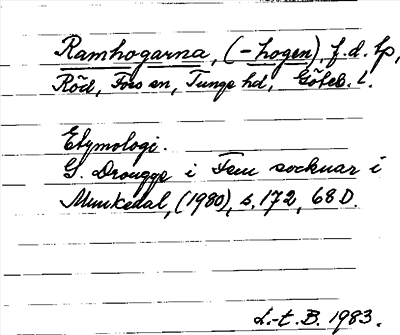 Ramhogarna, (-hogen), f.d. lp,
Röd, Foss sn, Tunge hd, Göteb. l.
Etymologi.
G. Drougge i Fem socknar i
Munkedal, (1980), s. 172, 68 D.
L.-t. B. 1983.